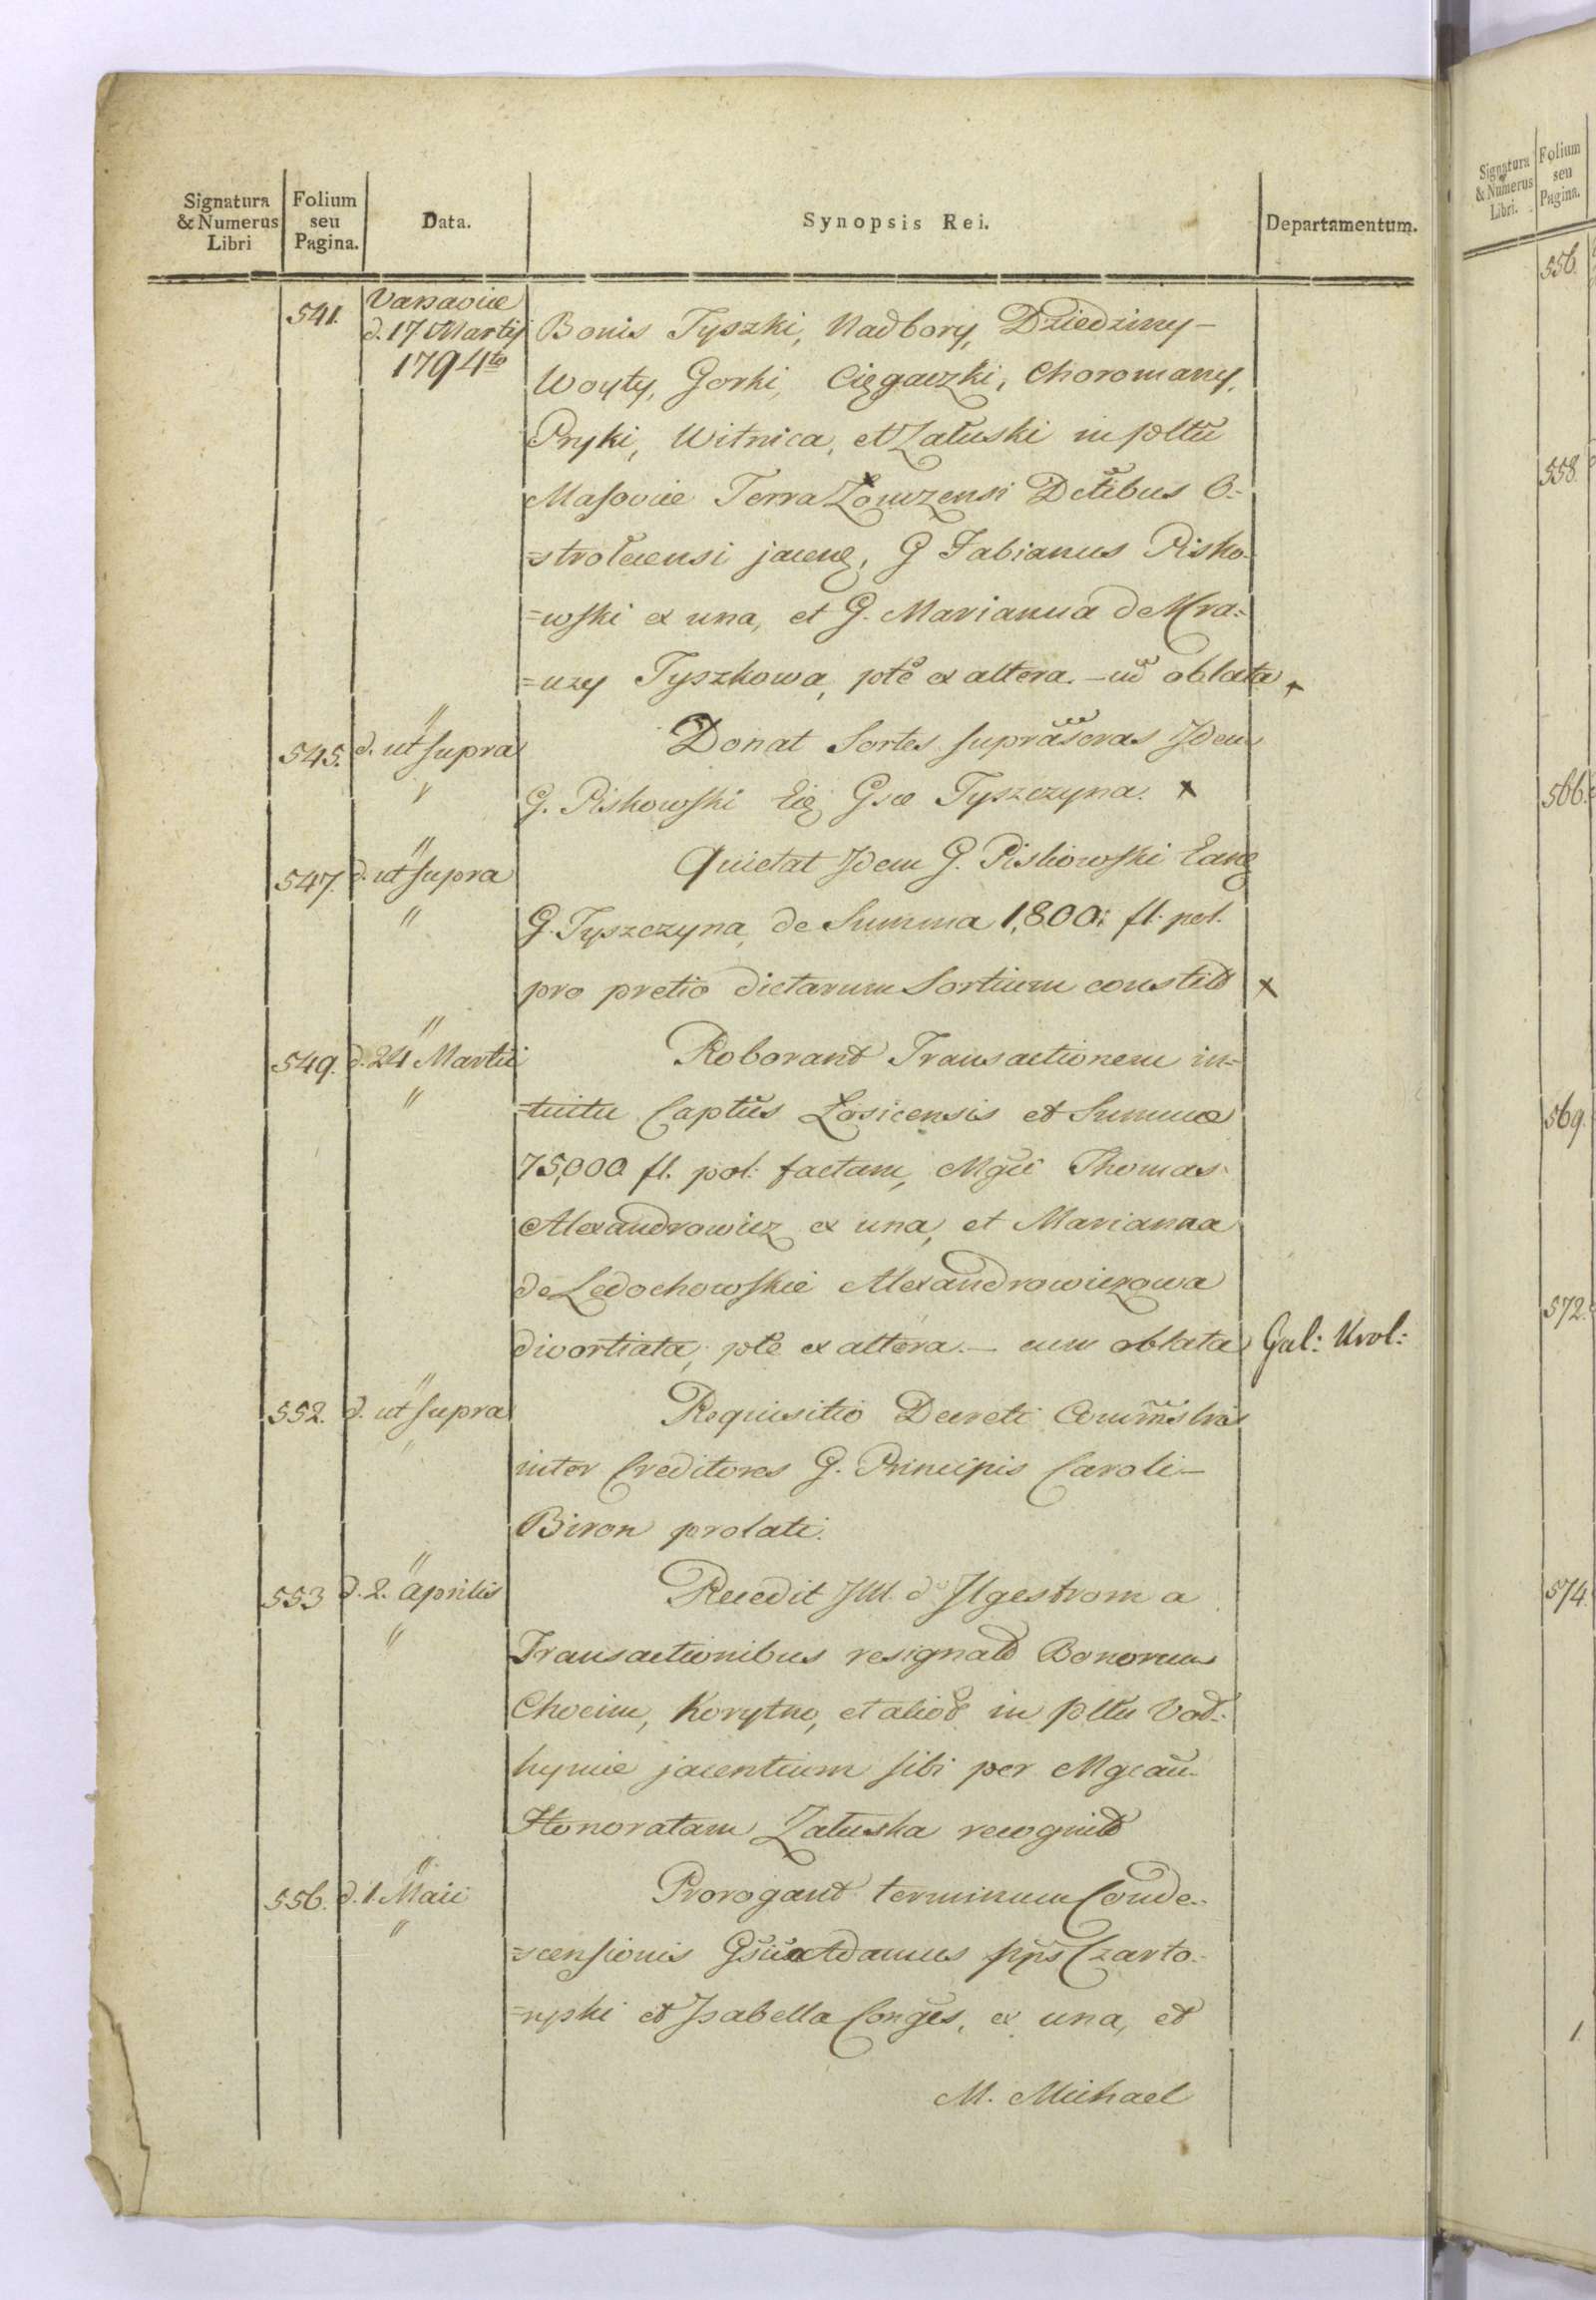 Signatura & Numerus Libri
Folium seu Pagina.
Data.
Synopsis Rei.
Departamentum.
541. Varsaviæ
d. 17 Martij
1794to
Bonis Tyszki, Nadbory, Dziedziny-
Woyty, Gorki, Cięgaczki, Choromany,
Pryki, Witnica, et Załuski in pltu
Masoviæ Terra Łomzensi Dctibus O=
=strołecensi jacen, G Fabianus Pisko-
=wski ex una, et G. Marianna de Mra=
=uzy Tyszkowa, pte ex altera. - cu oblata x
545. d. ut supra
Donat Sortes suprascras Idem
G. Piskowski Gsæ Tyszczyna. x
547. d. ut supra
Quietat Idem G. Piskowski Ean
G. Tyszczyna, de Summa 1,800: fl. pol.
pro pretio dictarum Sortium constit x
549. d. 24 Martii
Roborant Transactionem in=
=tuitu Captus Łosicensis et Summæ
75,000 fl. pol: factam, Mgci Thomas
Alexandrowicz ex una, et Marianna
de Ledochowskie Alexandrowiczowa
divortiata, pte ex altera. - cum oblata
Gal: Krol:
552. d. ut supra
Requisitio Decreti Commstris
inter Creditores G. Principis Caroli-
Biron prolati.
553 d. 2. Aprilis
Recedit Ill. d Ilgestrom a
Transactionibus resignat Bonorum
Chocim, Korytno, et alior in pltu Vod-
hyniæ jacentium sibi per Mgcau-
Honoratam Załuska recognit
556. d. 1. Maii
Prorogant terminum Conde-
=scensionis Gsus Adamus pps Czarto-
=ryski et Isabella Conges, ex una, et
M. Michael
Signatura & Numerus Libri.
Folium seu Pagina.
556.
558.
566.
569.
572.
574.
1.